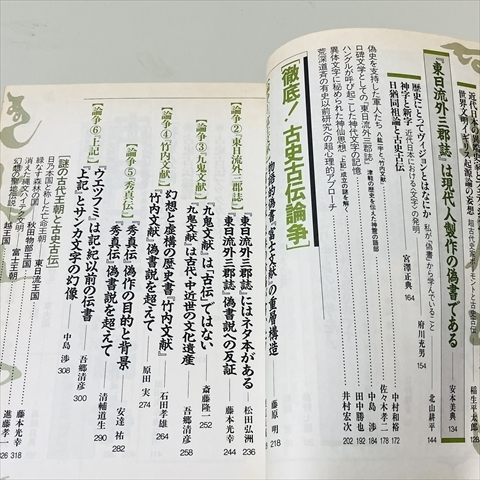 近代日本の
世界イギリス起源論の妄想
稲生平太郎
『東日流外三郡誌』は現代人製作の偽書である
安本美典
134
歴史にとってヴィジョンとはなにか
北山耕平
144
神字と新字
近代日本における〈文字〉の発明
府川充男
154
日猶同祖論と古史古伝
私が〈偽書〉から学んでいること
宮澤正典
164
偽史を支持した軍人たち
中村和裕
172
口碑文学としての『東日流外三郡誌』
津軽の歴史を伝えた神霊の語部
佐々木孝二
178
ハングルが呼び起こした神代文字の記憶
『上記』成立の謎を解く
中島渉
184
異体文字に秘められた神仙思想
田中勝也
192
荒深道斉の有史以前研究への超心理的アプローチ
井村宏次
202
徹底!古史古伝論争
物語的偽書『富士文献』の重層構造
藤原明
218
【論争②東日流外三郡誌】
『東日流外三郡誌』にはネタ本がある
松田弘洲
236
『東日流外三郡誌』偽書説への反証
藤本光幸
244
【論争③九鬼文献】
『九鬼文献』は「古伝」ではない
斎藤隆一
252
『九鬼文献』は古代、中近世の文化遺産
吾郷清彦
258
【論争④竹内文献】
幻想と虚構の歴史書『竹内文献』
石田孝雄
264
『竹内文献』偽書説を超えて
原田実
274
【論争⑤秀真伝】
『秀真伝』偽作の目的と背景
安達祐
282
『秀真伝』偽書説を超えて
清輔道生
290
【論争⑥上記】
『ウエツフミ』は記紀以前の伝書
吾郷清彦
300
『上記』とサンカ文字の幻像
中島渉
308
【謎の古代王朝と古史古伝】
日乃本国と称した亡命王朝――東日流王国
藤本光幸
318
緑なす森林の国――秋田物部王国
進藤孝一
326
消えた縄文ハイテク文明――越王国
幻想の聖地伝説――富士王朝